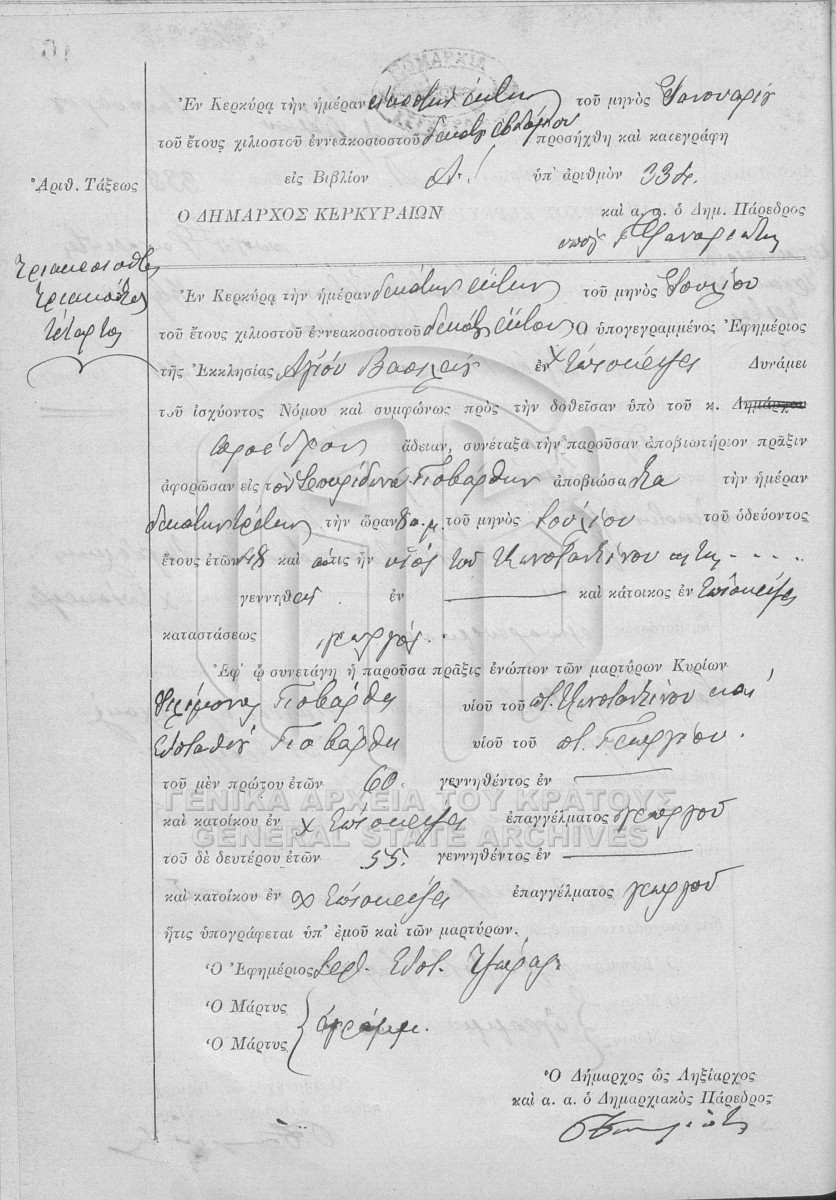 Ἐν Κερκύρᾳ τὴν ἡμέραν εἰκοστὴν ἕκτην τοῦ μηνὸς Ἰανουαρίου
τοῦ ἔτους χιλιοστοῦ ἐννεακοσιοστοῦ δεκάτου ἑβδόμου προσήχθη καὶ κατεγράφη
Ἀριθ. Τάξεως
εἰς Βιβλίον Α! ὑπ' ἀριθμὸν 334.
Ο ΔΗΜΑΡΧΟΣ ΚΕΡΚΥΡΑΙΩΝ
καὶ α. α. ὁ Δημ. Πάρεδρος
Τριακοσιοστὸς
τριακοστὸς
τέταρτος
Ἐν Κερκύρᾳ τὴν ἡμέραν δεκάτην ἕκτην τοῦ μηνὸς Ἰουλίου
τοῦ ἔτους χιλιοστοῦ ἐννεακοσιοστοῦ δεκάτου ἕκτου Ὁ ὑπογεγραμμένος Ἐφημέριος
τῆς Ἐκκλησίας Ἁγίου Βασιλείου ἐν χ Ἐπίσκεψις Δυνάμει
τοῦ ἰσχύοντος Νόμου καὶ συμφώνως πρὸς τὴν δοθεῖσαν ὑπὸ τοῦ κ. Δημάρχου
προέδρου ἄδειαν, συνέταξα τὴν παροῦσαν ἀποβιωτήριον πρᾶξιν
ἀφορῶσαν εἰς τὸν Σπυρίδωνα Γιοβάρλην ἀποβιώσαντα τὴν ἡμέραν
δεκάτην τρίτην τὴν ὥραν 8 π.μ. τοῦ μηνὸς Ἰουλίου τοῦ ὁδεύοντος
ἔτους ἐτῶν 48 καὶ ὅστις ἦν υἱὸς τοῦ Κωνσταντίνου
γεννηθεὶς ἐν καὶ κάτοικος ἐν Ἐπίσκεψις
καταστάσεως γεωργός.
Ἐφ' ᾧ συνετάγη ἡ παροῦσα πρᾶξις ἐνώπιον τῶν μαρτύρων Κυρίων
Φιλήμονος Γιοβάρλη υἱοῦ τοῦ π. Κωνσταντίνου καὶ
Εὐσταθίου Γιοβάρλη υἱοῦ τοῦ π. Γεωργίου.
τοῦ μὲν πρώτου ἐτῶν 60. γεννηθέντος ἐν
ΓΕΝΙΚΑ ΑΡΧΕΙΑ ΤΟΥ ΚΡΑΤΟΥΣ
καὶ κατοίκου ἐν χ Ἐπίσκεψις ἐπαγγέλματος γεωργοῦ
GENERAL STATE ARCHIVES
τοῦ δὲ δευτέρου ἐτῶν 55. γεννηθέντος ἐν
καὶ κατοίκου ἐν χ Ἐπίσκεψις ἐπαγγέλματος γεωργοῦ
ἥτις ὑπογράφεται ὑπ' ἐμοῦ καὶ τῶν μαρτύρων.
Ὁ Ἐφημέριος
Ὁ Μάρτυς
ἀγράμμ.
Ὁ Μάρτυς
Ὁ Δήμαρχος ὡς Ληξίαρχος
καὶ α. α. ὁ Δημαρχιακὸς Πάρεδρος